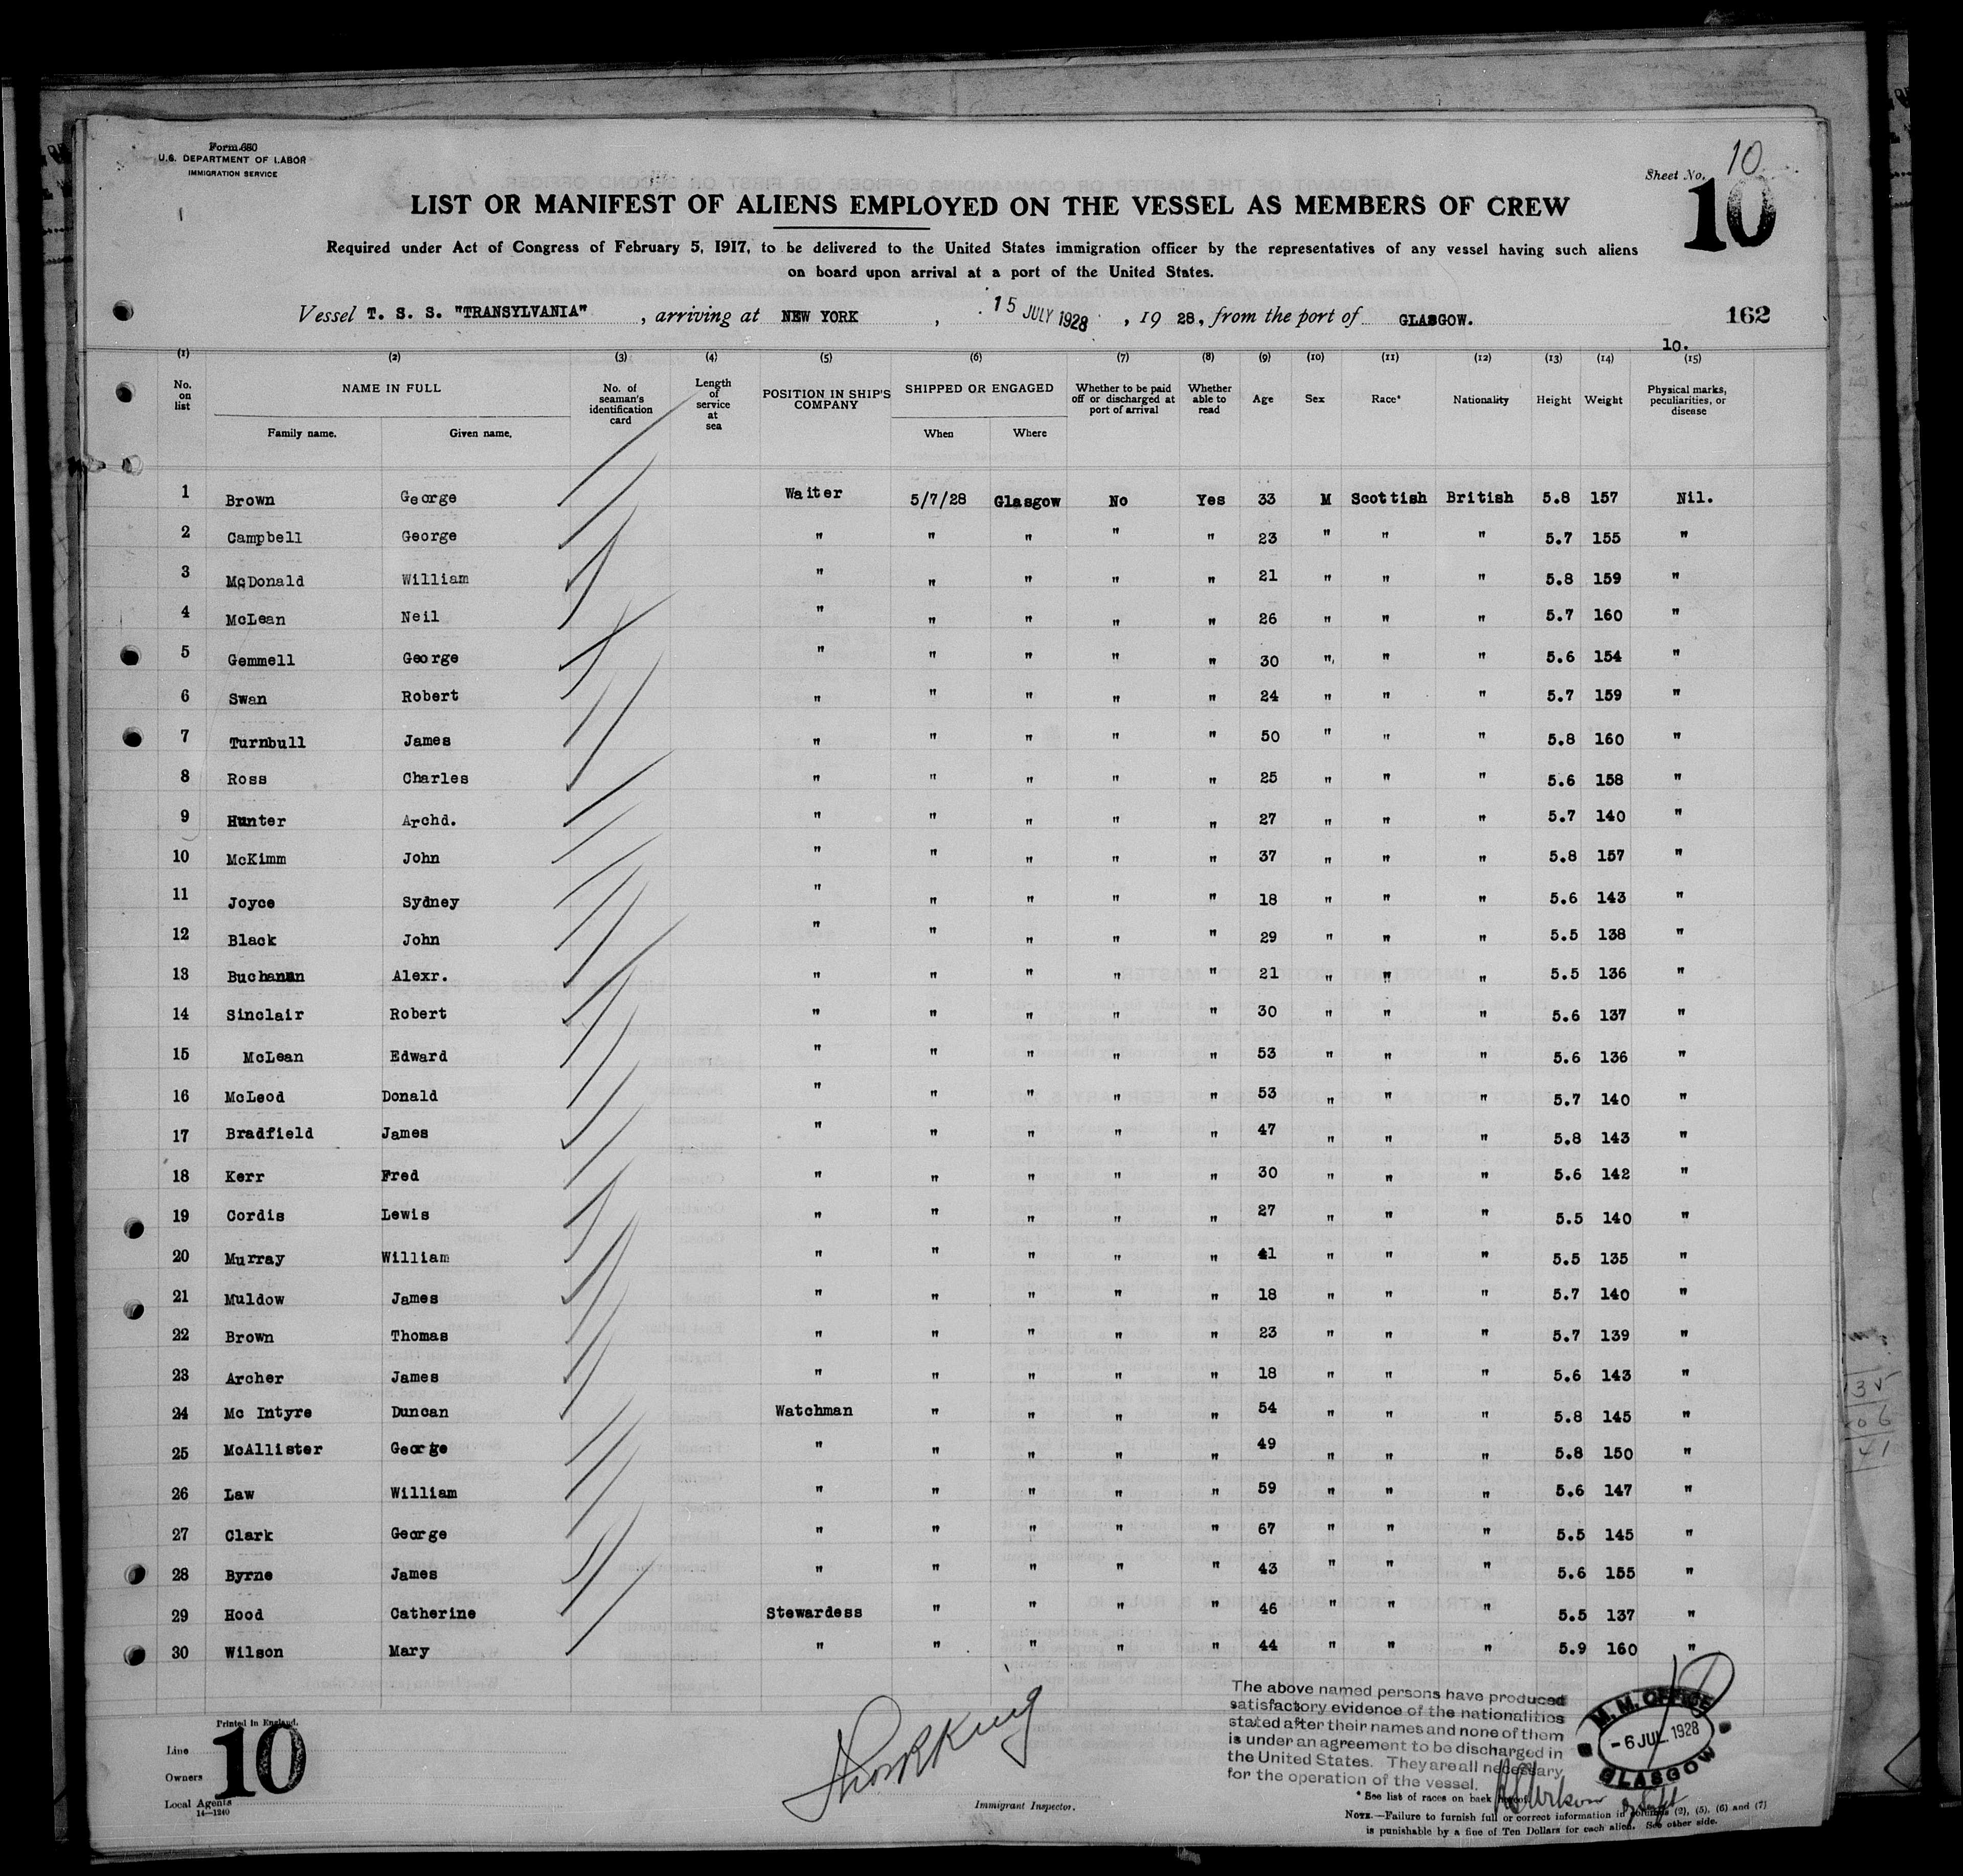 Form 680
U.S. DEPARTMENT OF LABOR
IMMIGRATION SERVICE
Sheet No. 10
10
LIST OR MANIFEST OF ALIENS EMPLOYED ON THE VESSEL AS MEMBERS OF CREW
Required under Act of Congress of February 5, 1917, to be delivered to the United States immigration officer by the representatives of any vessel having such aliens
on board upon arrival at a port of the United States.
Vessel T. S. S. "TRANSYLVANIA", arriving at NEW YORK, 15 JULY 1928, 19 28, from the port of GLASGOW.
162
10.
(1) (2) (3) (4) (5) (6) (7) (8) (9) (10) (11) (12) (13) (14) (15)
No. on list NAME IN FULL Family name. Given name. No. of seaman's identification card Length of service at sea POSITION IN SHIP'S COMPANY SHIPPED OR ENGAGED When Where Whether to be paid off or discharged at port of arrival Whether able to read Age Sex Race* Nationality Height Weight Physical marks, peculiarities, or disease
1 Brown George Waiter 5/7/28 Glasgow No Yes 33 M Scottish British 5.8 157 Nil.
2 Campbell George " " " " " 23 " " " 5.7 155 "
3 McDonald William " " " " " 21 " " " 5.8 159 "
4 McLean Neil " " " " " 26 " " " 5.7 160 "
5 Gemmell George " " " " " 30 " " " 5.6 154 "
6 Swan Robert " " " " " 24 " " " 5.7 159 "
7 Turnbull James " " " " " 50 " " " 5.8 160 "
8 Ross Charles " " " " " 25 " " " 5.6 158 "
9 Hunter Archd. " " " " " 27 " " " 5.7 140 "
10 McKimm John " " " " " 37 " " " 5.8 157 "
11 Joyce Sydney " " " " " 18 " " " 5.6 143 "
12 Black John " " " " " 29 " " " 5.5 138 "
13 Buchanan Alexr. " " " " " 21 " " " 5.5 136 "
14 Sinclair Robert " " " " " 30 " " " 5.6 137 "
15 McLean Edward " " " " " 53 " " " 5.6 136 "
16 McLeod Donald " " " " " 53 " " " 5.7 140 "
17 Bradfield James " " " " " 47 " " " 5.8 143 "
18 Kerr Fred " " " " " 30 " " " 5.6 142 "
19 Cordis Lewis " " " " " 27 " " " 5.5 140 "
20 Murray William " " " " " 41 " " " 5.5 135 "
21 Muldow James " " " " " 18 " " " 5.7 140 "
22 Brown Thomas " " " " " 23 " " " 5.7 139 "
23 Archer James " " " " " 18 " " " 5.6 143 "
24 Mc Intyre Duncan Watchman " " " " 54 " " " 5.8 145 "
25 McAllister George " " " " " 49 " " " 5.8 150 "
26 Law William " " " " " 59 " " " 5.6 147 "
27 Clark George " " " " " 67 " " " 5.5 145 "
28 Byrne James " " " " " 43 " " " 5.6 155 "
29 Hood Catherine Stewardess " " " " 46 " " " 5.5 137 "
30 Wilson Mary " " " " " 44 " " " 5.9 160 "
The above named persons have produced
satisfactory evidence of the nationalities
stated after their names and none of them
is under an agreement to be discharged in
the United States. They are all necessary
for the operation of the vessel.
M. M. OFFICE
- 6 JUL 1928
GLASGOW
Printed in England.
10
Line
Owners
Local Agents
14—1240
Immigrant Inspector.
* See list of races on back hereof.
NOTE.—Failure to furnish full or correct information in columns (2), (5), (6) and (7)
is punishable by a fine of Ten Dollars for each alien. See other side.